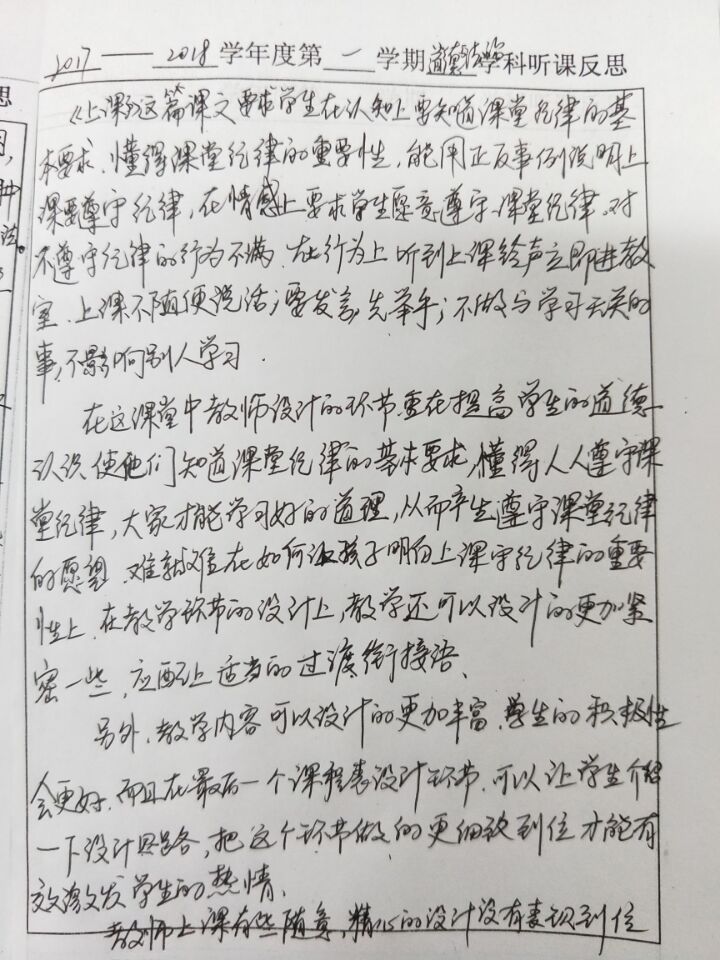 2017——2018学年度第一学期道德与法治学科听课反思
《上课》这篇课文要求学生在认知上要知道课堂纪律的基
本要求、懂得课堂纪律的重要性，能用正反事例说明上
课要遵守纪律，在情感上要求学生愿意遵守课堂纪律。对
不遵守纪律的行为不满。在行为上听到上课铃声立即进教
室、上课不随便说话；要发言先举手；不做与学习无关的
事，不影响别人学习．
在这课堂中教师设计的环节重在提高学生的道德
认识使他们知道课堂纪律的基本要求，懂得人人遵守课
堂纪律，大家才能学习好的道理，从而产生遵守课堂纪律
的愿望．难就难在如何让孩子明白上课守纪律的重要
性上．在教学环节的设计上，教学还可以设计的更加紧
密一些，应配上适当的过渡衔接语、
另外，教学内容可以设计的更加丰富，学生的积极性
会更好．而且在最后一个课程表设计环节．可以让学生介绍
一下设计思路，把这个环节做的更细致到位才能有
效激发学生的热情、
教师上课有些随意，精心的设计没有表现到位
思